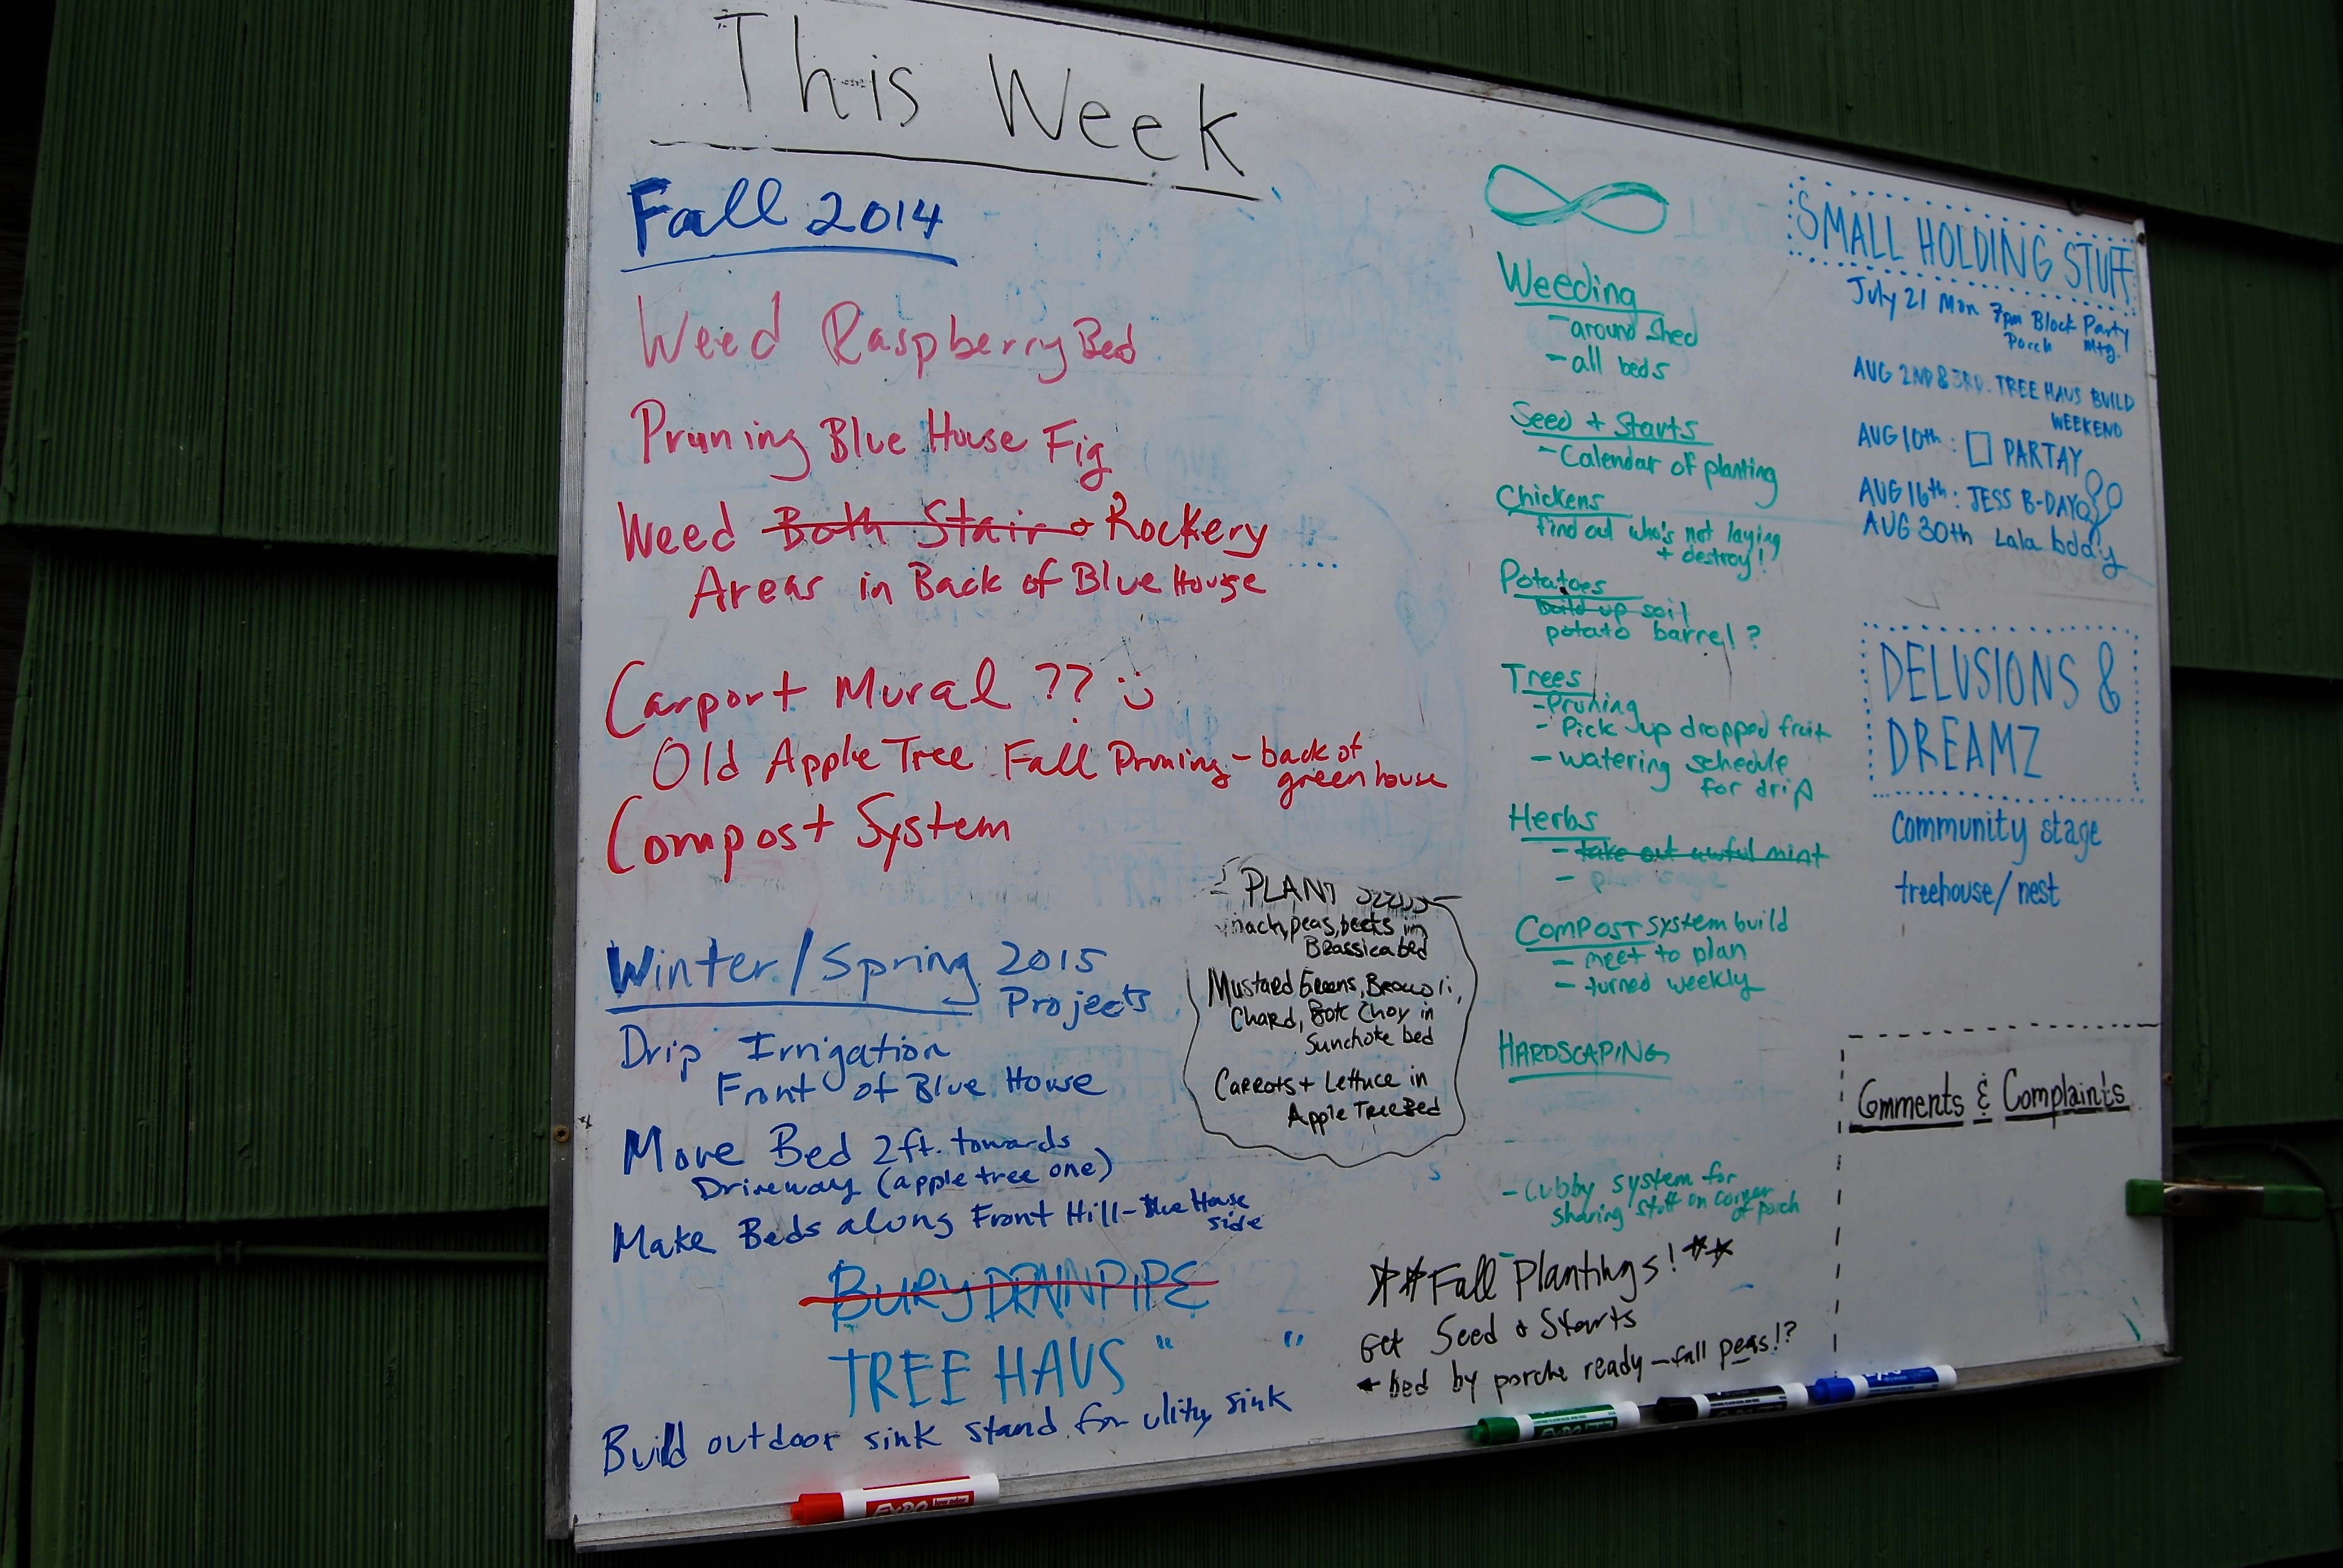 This Week
Fall 2014
Weed Raspberry Bed
Pruning Blue House Fig
Weed Both Stair + Rockery
Areas in Back of Blue House
Carport Mural ??
Old Apple Tree Fall Pruning - back of
green house
Compost System
Winter/Spring 2015
Projects
Drip Irrigation
Front of Blue House
Move Bed 2ft. towards
Driveway (apple tree one)
Make Beds along Front Hill - Blue House
side
BURY DRAINPIPE
TREE HAUS " "
Build outdoor sink stand for ulity sink
PLANT
peas, beets in
Brassica bed
Mustard Greens, Broccoli,
Chard, Bok Choy in
Sunchoke bed
Carrots + Lettuce in
Apple Tree Bed
Weeding
- around shed
- all beds
Seed + Starts
- Calendar of planting
Chickens
find out who's not laying
+ destroy!
Potatoes
build up soil
potato barrel?
Trees
- Pruning
- Pick up dropped fruit
- watering schedule
for drip
Herbs
- take out awful mint
- plant sage
COMPOST system build
- meet to plan
- turned weekly
HARDSCAPING
- Cubby system for
sharing stuff on corner
of porch
**Fall Plantings!**
Get Seed + Starts
← bed by porche ready - fall peas!?
SMALL HOLDING STUFF
July 21 Mon 7pm Block Party
Porch Mtg.
AUG 2ND & 3RD. TREE HAUS BUILD
WEEKEND
AUG 10th: □ PARTAY
AUG 16th: JESS B-DAY
AUG 30th Lala bday
DELUSIONS &
DREAMZ
community stage
treehouse/nest
Comments & Complaints
EXPO
EXPO